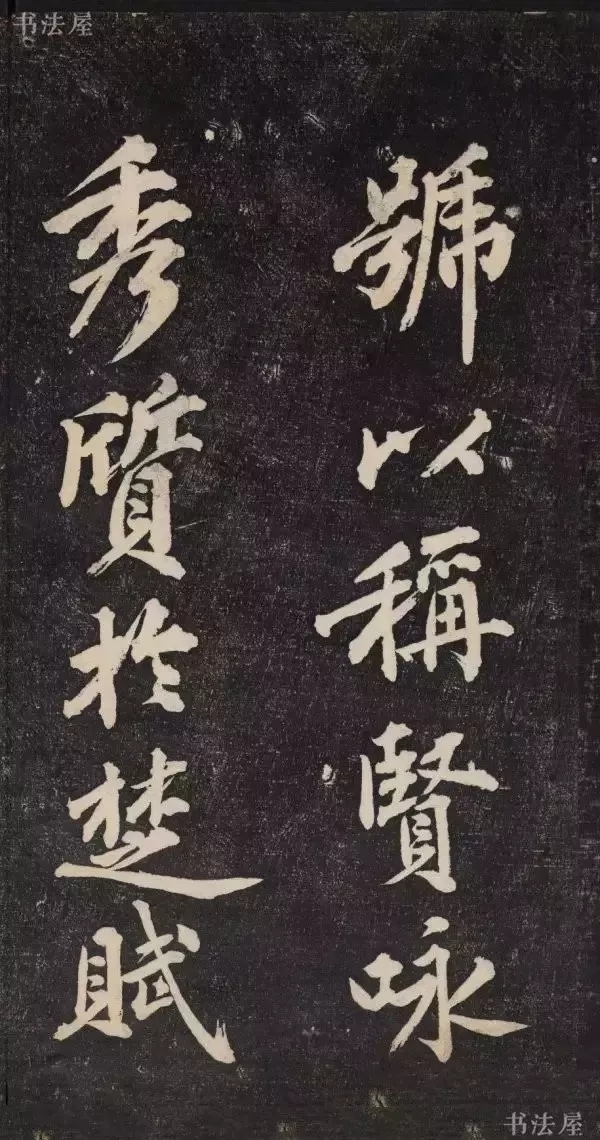 书法屋
號以稱賢咏
秀質於楚賦
书法屋